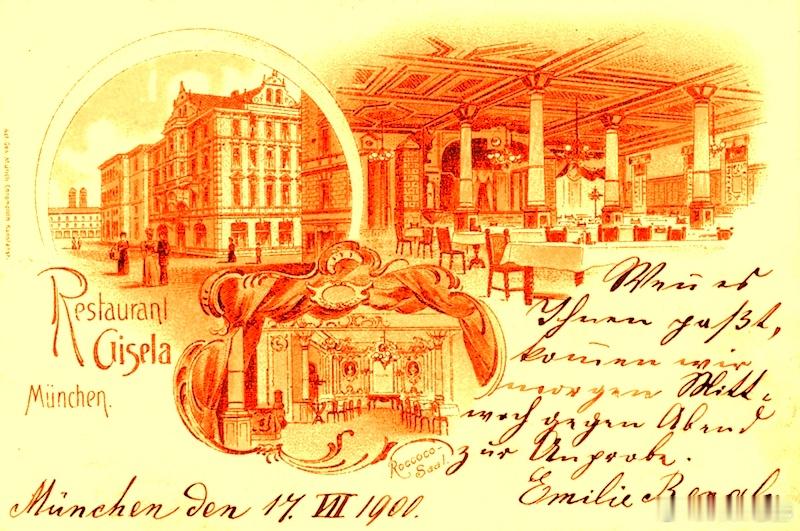 Restaurant
Gisela
München.
Roccoco-
Saal.
Wen̄ es
Ihnen paßt,
kom̄en wir
morgen Mitt-
woch gegen Abend
zur Anprobe.
Emilie
München den 17. VII 1900.